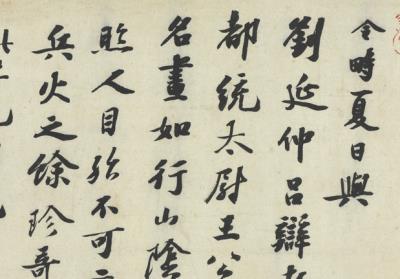 仝時夏日與
劉延仲呂辯
都統太尉王公
名畫如行山陰
照人目殆不可
兵火之餘珍哥